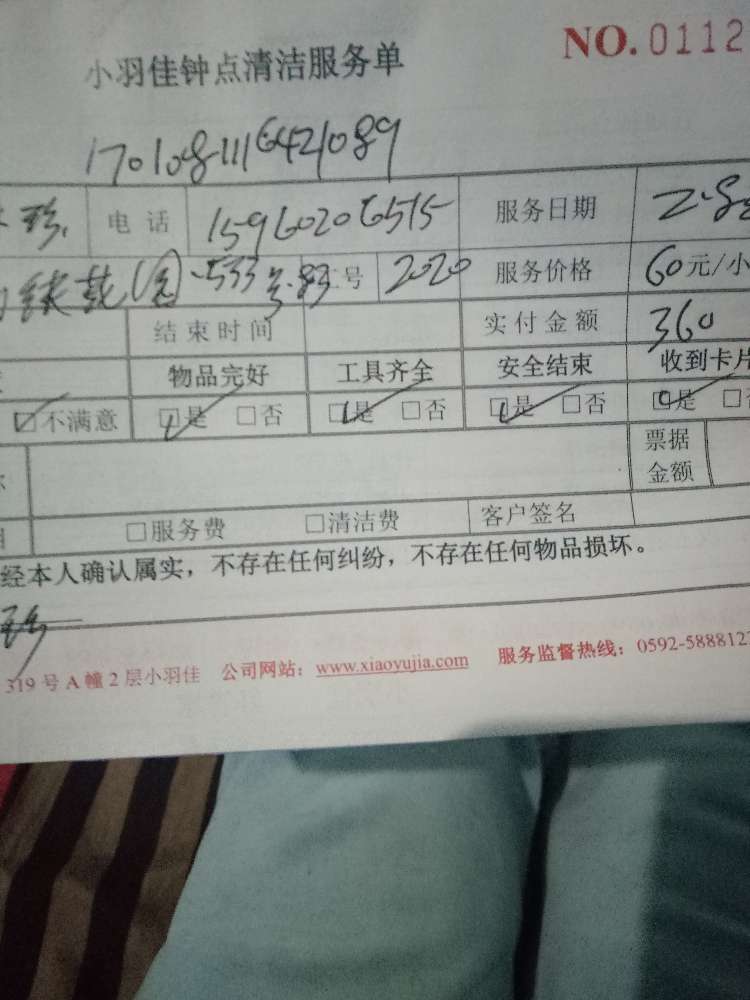 NO.0112
小羽佳钟点清洁服务单
1701081116421089
珍 电话 15960206515 服务日期
533 号 2020 服务价格 60元/小
结束时间 实付金额 360
物品完好 工具齐全 安全结束 收到卡片
□不满意 □是 □否 □是 □否 □是 □否 □是
票据
金额
□服务费 □清洁费 客户签名
经本人确认属实，不存在任何纠纷，不存在任何物品损坏。
319号A幢2层小羽佳 公司网站：www.xiaoyujia.com 服务监督热线：0592-588812